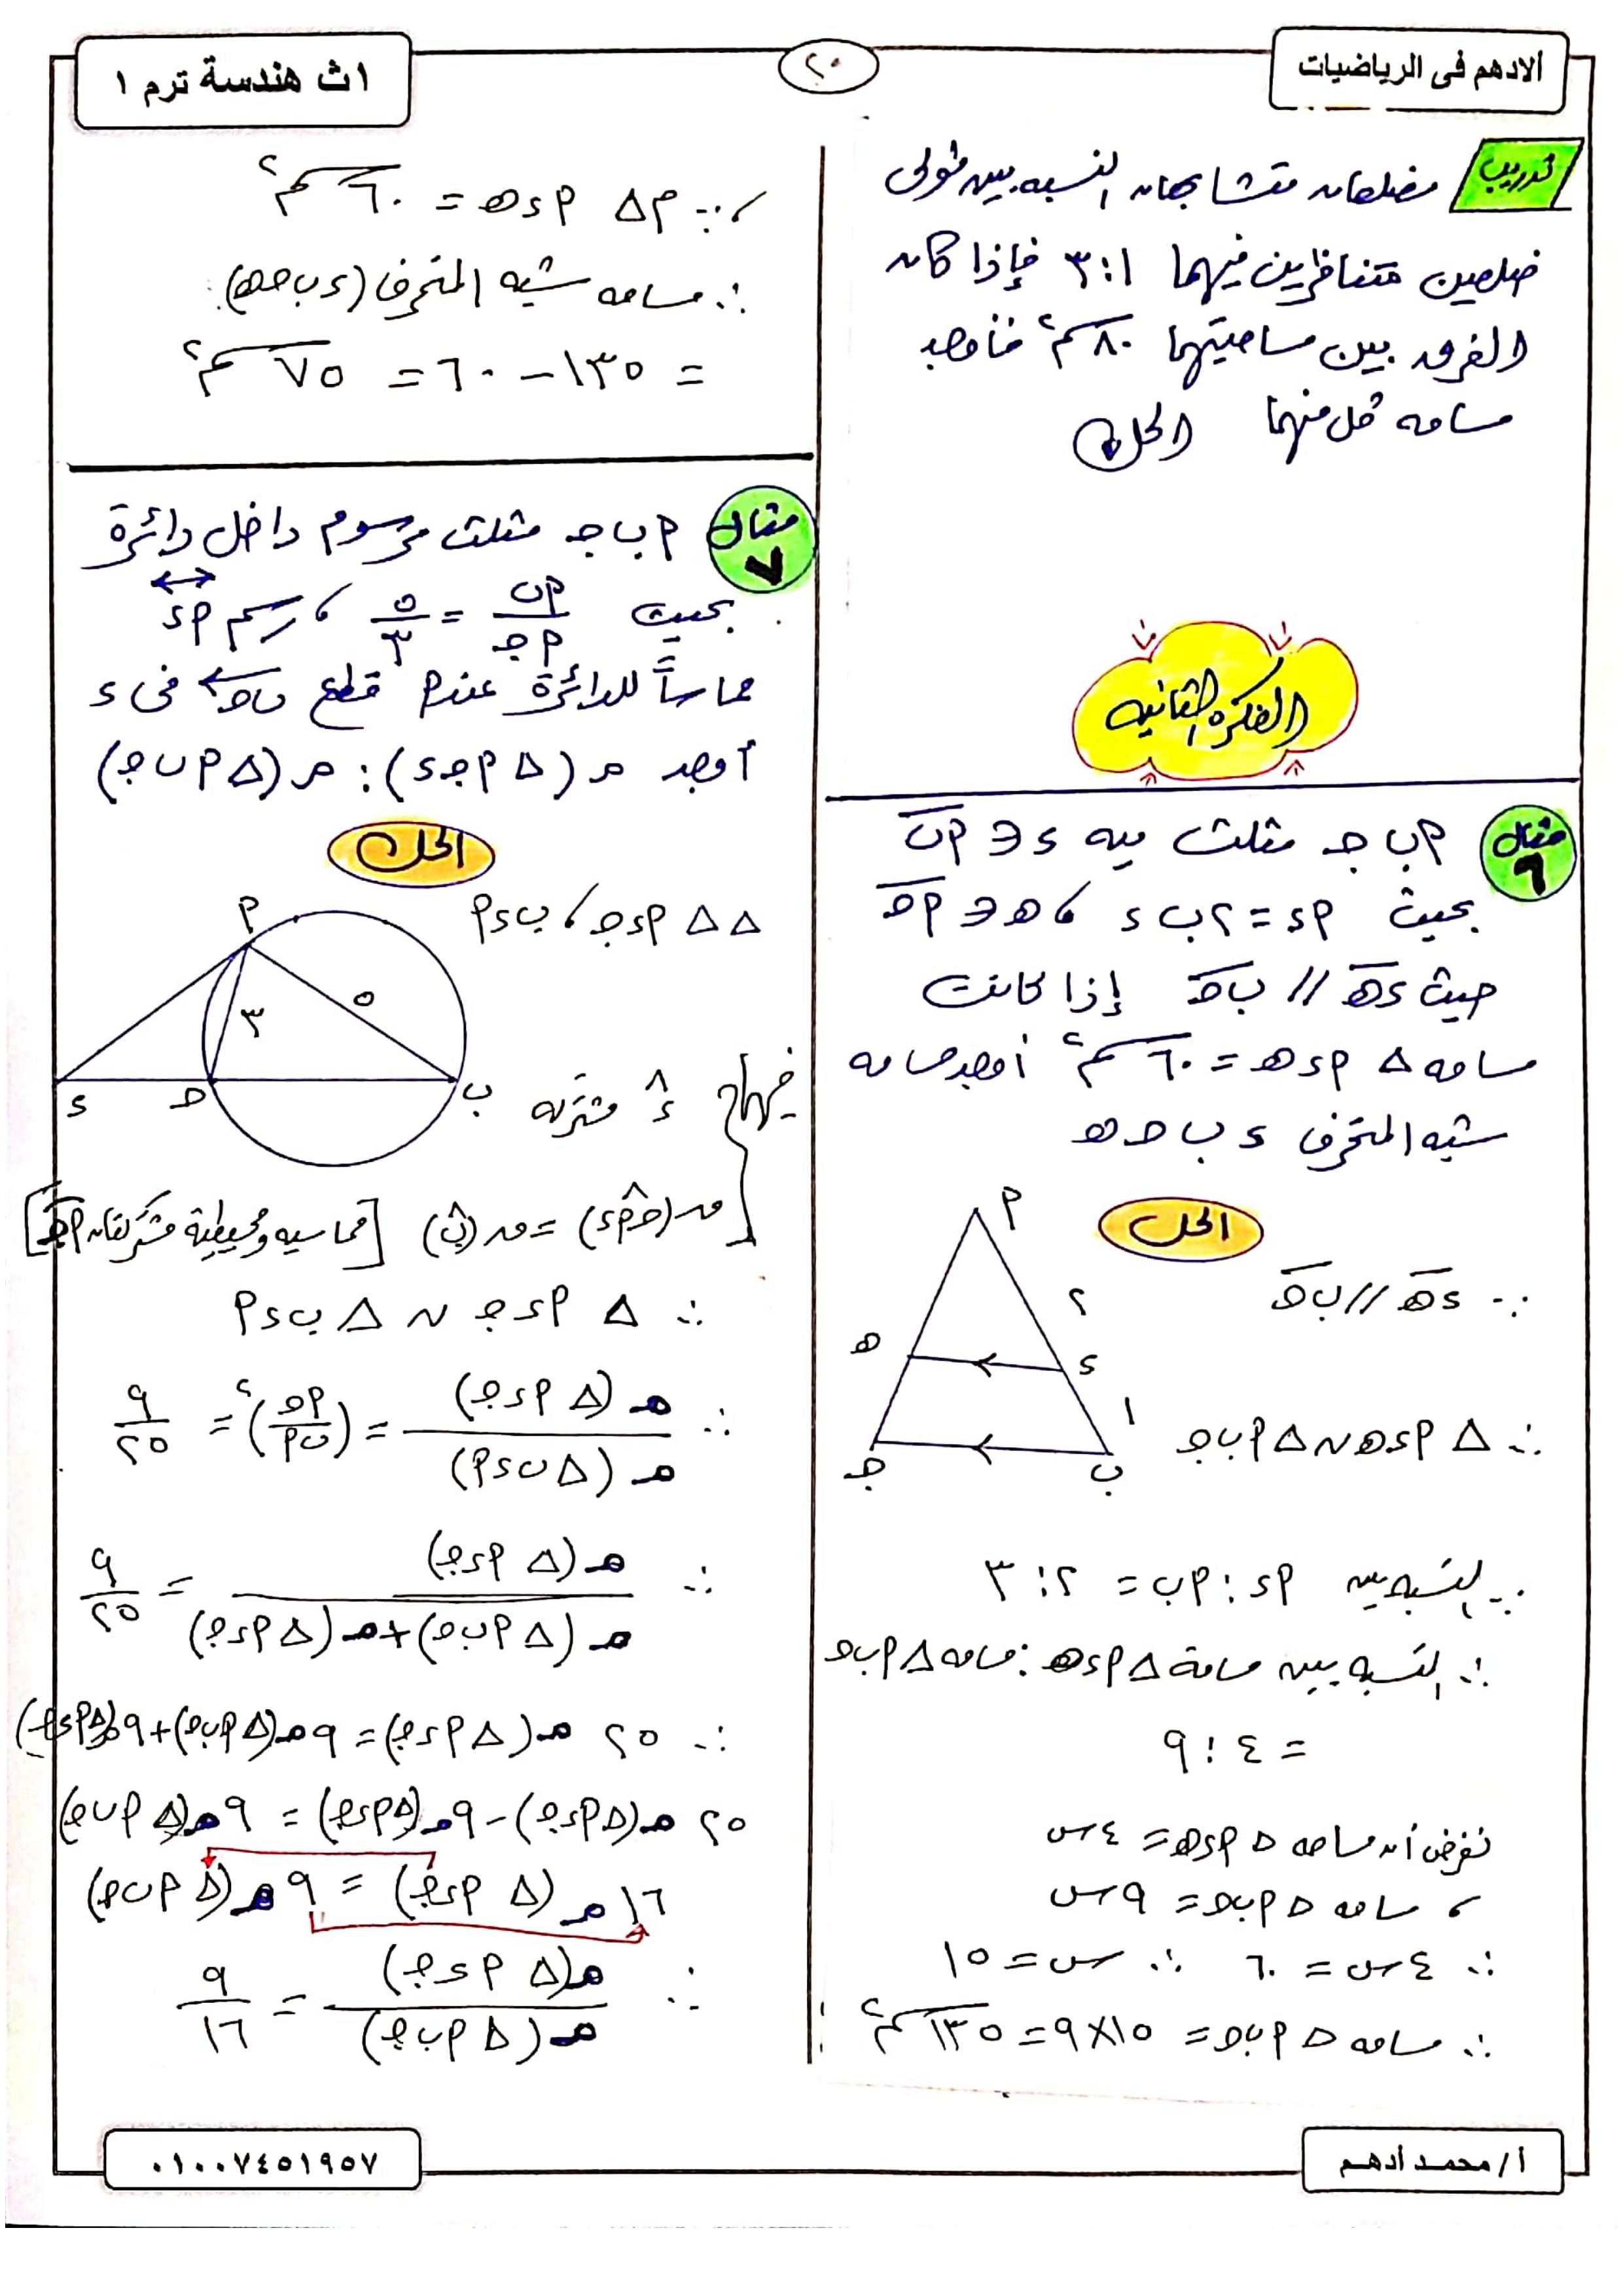 ألادهم فى الرياضيات
٢٠
١ث هندسة ترم ١
تدريب
مضلعان متشابهان النسبه بين طولى
ضلعين متناظرين فيهما ١ : ٣ فإذا كان
الفرق بين مساحتيهما ٨٠ سم٢ فأوجد
مساحه كل منهما الحل
الفكرة الثانيه
مثال ٦
أ ب جـ مثلث فيه ء ∈ أب
بحيث أء = ٢ ب ء ، هـ ∈ أجـ
حيث ءهـ // ب جـ إذا كانت
مساحه Δ أءهـ = ٦٠ سم٢ أوجد مساحه
شبه المنحرف ء ب جـ هـ
الحل
أ
٢
هـ
ء
١
جـ
ب
∵ ءهـ // ب جـ
∴ Δ أءهـ ~ Δ أ ب جـ
∵ النسبه بين أء : أب = ٢ : ٣
∴ النسبه بين مساحة Δ أءهـ : مساحه Δ أ ب جـ
= ٤ : ٩
نفرض أن مساحه Δ أءهـ = ٤س
، مساحه Δ أ ب جـ = ٩س
∴ ٤س = ٦٠ ∴ س = ١٥
∴ مساحه Δ أ ب جـ = ١٥ × ٩ = ١٣٥ سم٢
، ∵ م Δ أءهـ = ٦٠ سم٢
∴ مساحه شبه المنحرف (ء ب جـ هـ)
= ١٣٥ − ٦٠ = ٧٥ سم٢
مثال ٧
أ ب جـ مثلث مرسوم داخل دائرة
بحيث أب / أجـ = ٥ / ٣ ، رسم أء
مماساً للدائرة عند أ قطع ب جـ فى ء
أوجد م (Δ أ جـ ء) : م (Δ أ ب جـ)
الحل
Δ Δ أ ء جـ ، ب ء أ
أ
٥
٣
ء
جـ
ب
فيهما
ء مشتركه
ق (جـ أ ء) = ق (ب) [مماسيه ومحيطية مشتركتان أ جـ]
∴ Δ أ ء جـ ~ Δ ب ء أ
∴ م (Δ أ ء جـ) / م (Δ ب ء أ) = (أجـ / أب)٢ = ٩ / ٢٥
∴ م (Δ أ ء جـ) / م (Δ أ ب جـ) + م (Δ أ ء جـ) = ٩ / ٢٥
∴ ٢٥ م (Δ أ ء جـ) = ٩ م (Δ أ ب جـ) + ٩ م (Δ أ ء جـ)
٢٥ م (Δ أ ء جـ) − ٩ م (Δ أ ء جـ) = ٩ م (Δ أ ب جـ)
١٦ م (Δ أ ء جـ) = ٩ م (Δ أ ب جـ)
∴ م (Δ أ ء جـ) / م (Δ أ ب جـ) = ٩ / ١٦
أ / محمـد أدهـم
٠١٠٠٧٤٥١٩٥٧